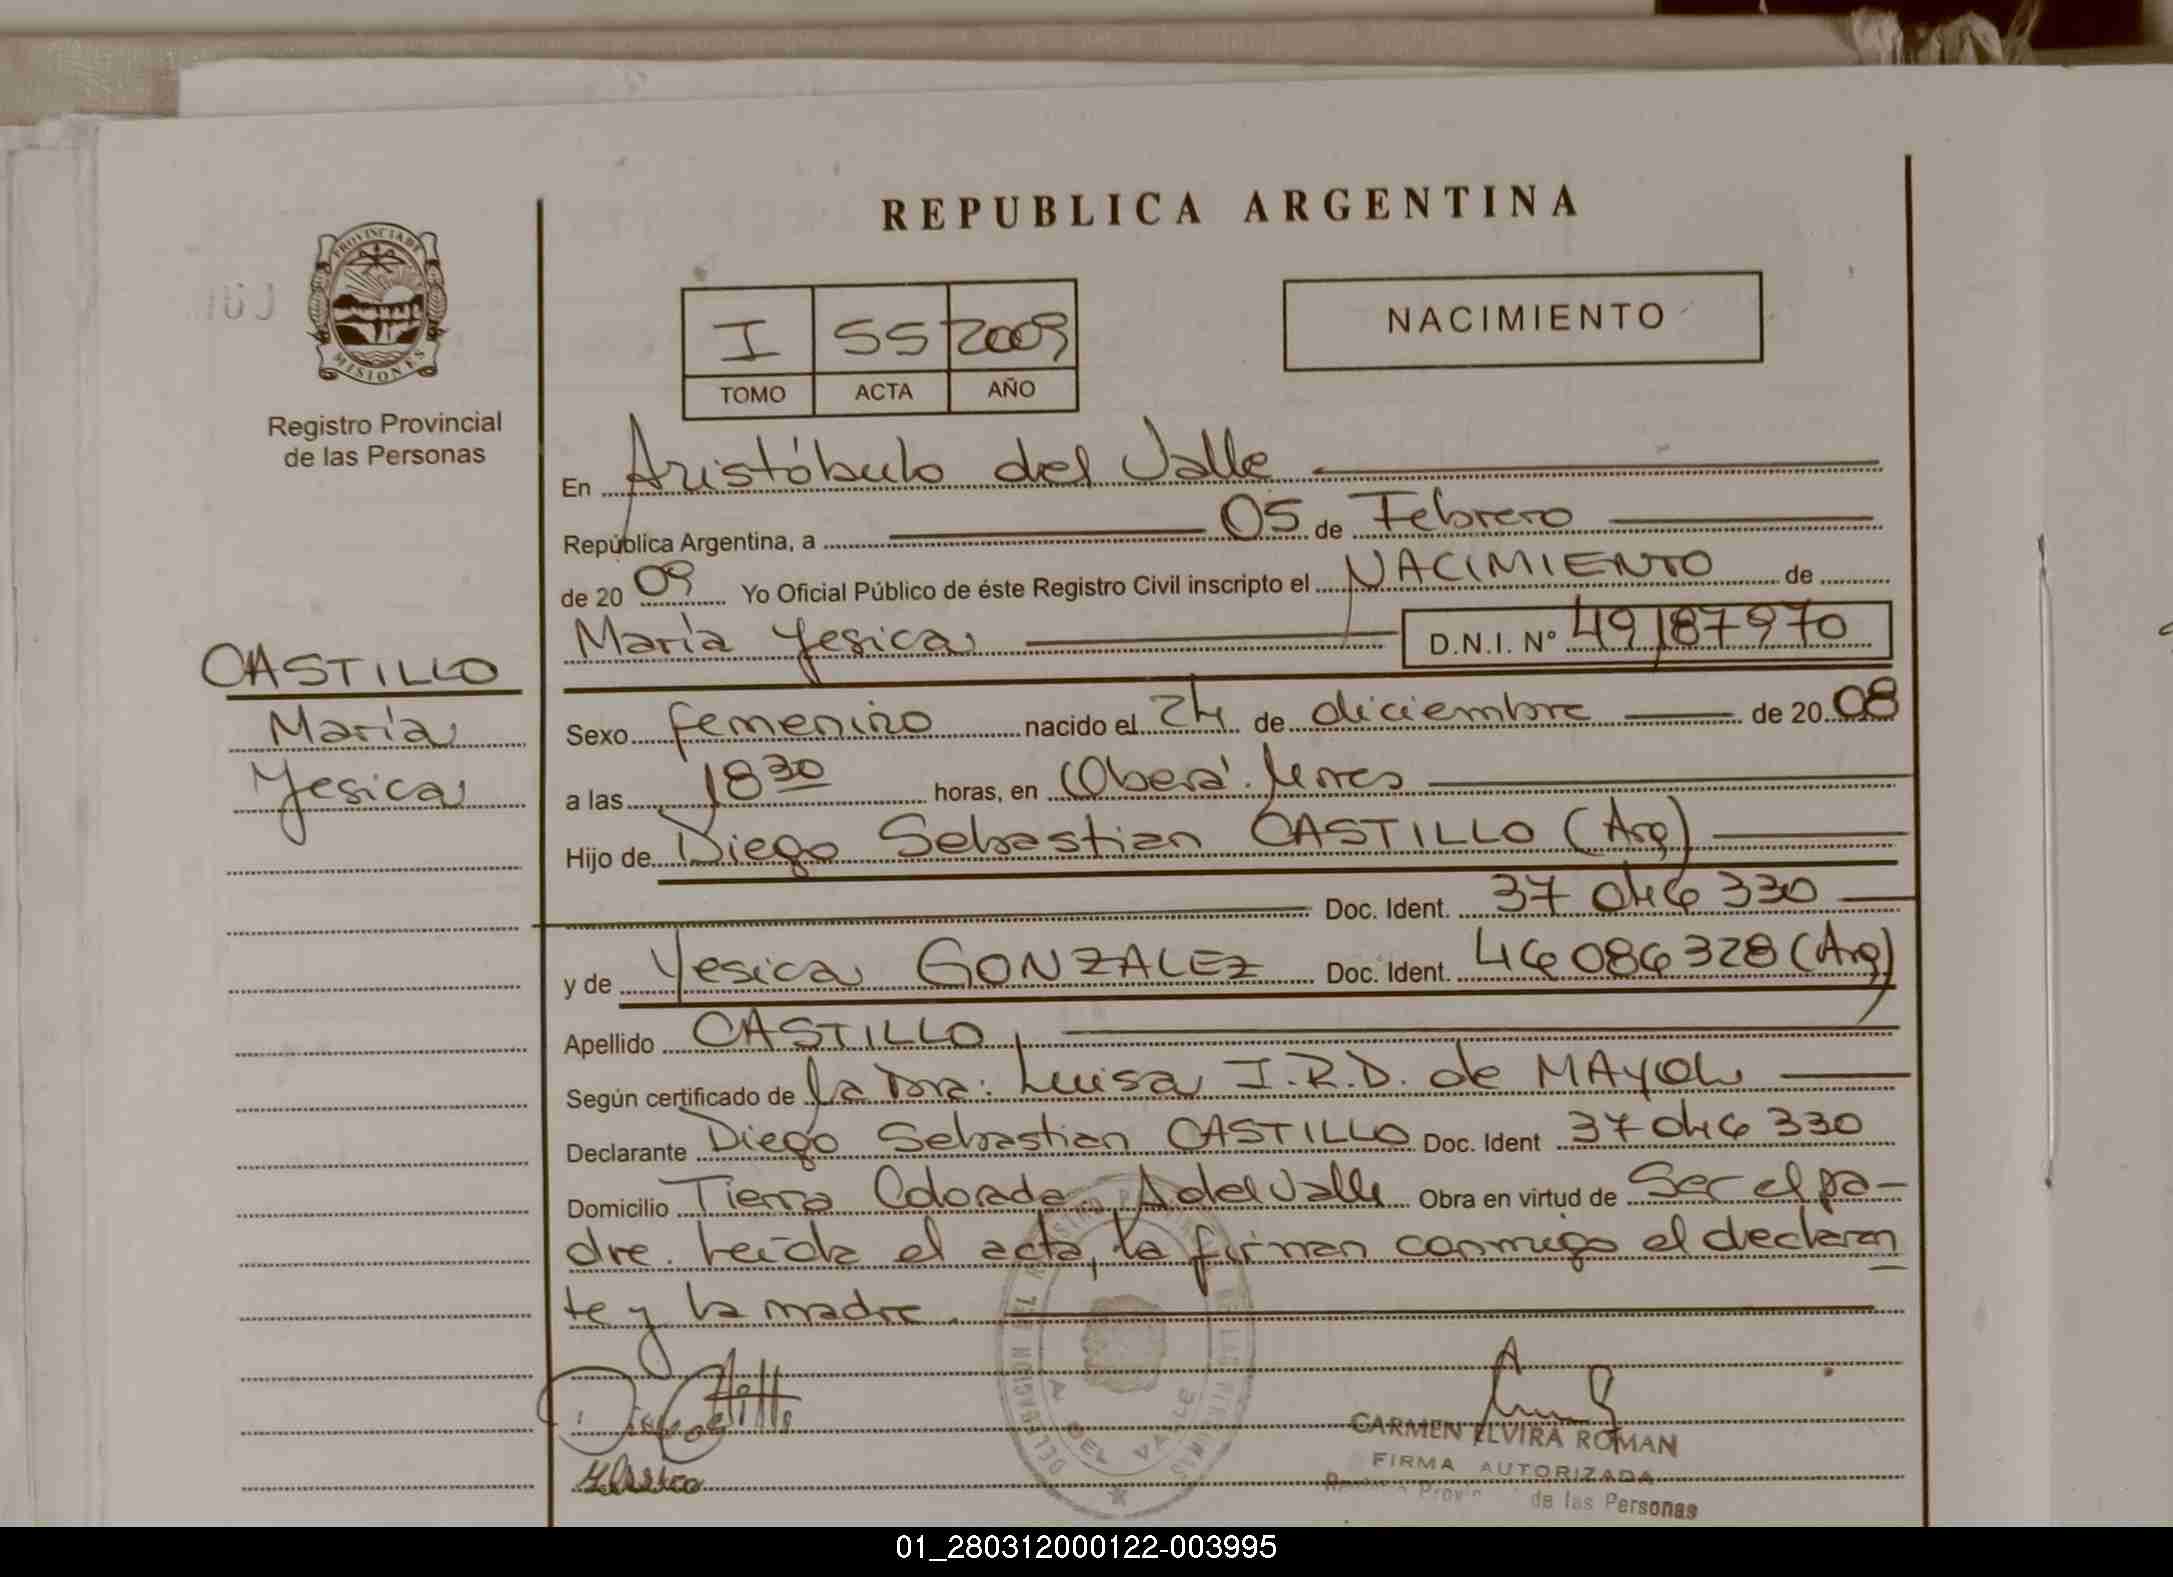 REPUBLICA ARGENTINA
PROVINCIA DE
MISIONES
Registro Provincial
de las Personas
I 55 2009
TOMO ACTA AÑO
NACIMIENTO
En Aristóbulo del Valle
República Argentina, a 05 de Febrero
de 2009 Yo Oficial Público de éste Registro Civil inscripto el NACIMIENTO de
María Yesica D.N.I. Nº 49187970
CASTILLO
María
Yesica
Sexo femenino nacido el 24 de diciembre de 2008
a las 18 30 horas, en Oberá.
Hijo de Diego Sebastian CASTILLO (Arg)
Doc. Ident. 37 046 330
y de Yesica GONZALEZ Doc. Ident. 46086328 (Arg)
Apellido CASTILLO
Según certificado de la Dra. Luisa I.R.D. de MAYOL
Declarante Diego Sebastian CASTILLO Doc. Ident 37 046 330
Domicilio Tierra Colorada A del Valle Obra en virtud de Ser el pa-
dre. Leída el acta, la firman conmigo el declaran
te y la madre.
CARMEN ELVIRA ROMAN
FIRMA AUTORIZADA
de las Personas
DELEGACION DEL
A. DEL VALLE
01_280312000122-003995